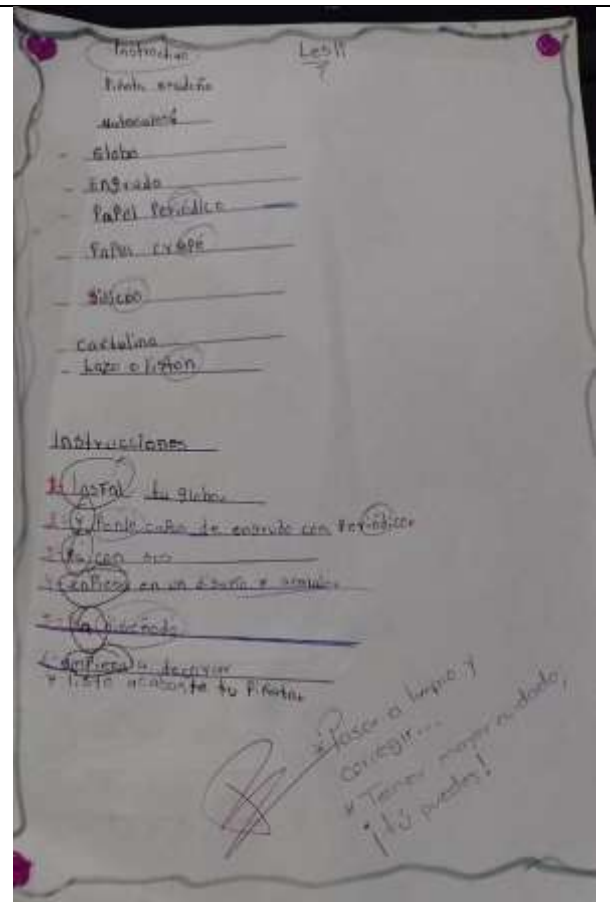 Instructivo Lesli
Piñata
- Globo
- Engrudo
- Papel Periódico
- Papel crepé
- Silicon
- Cartulina
- Lazo o liston
Instrucciones
tu globo
Ponle capas de engrudo con Periódico
3- Ya con
4- en un diseño
5- Ya diseñado
6- empieza a decorar
y listo acabaste tu Piñata
*Pasar a limpio y
corregir...
* Tener mayor cuidado,
¡tú puedes!